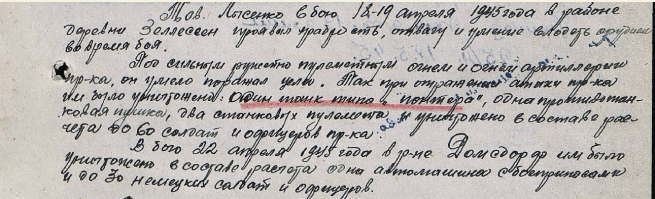 Тов. Лысенко в бою 18-19 апреля 1945 года в районе
деревни Зеллессен проявил храбрость, отвагу и умение владеть орудием
во время боя.
Под сильным ружейно пулеметным огнем и огнем артиллерии
пр-ка, он умело поражал цели. Так при отражении атаки пр-ка
им было уничтожено: один танк типа "пантера", одна противотан-
ковая пушка, два станковых пулемета, уничтожено в составе рас-
чета до 60 солдат и офицеров пр-ка.
В бою 22 апреля 1945 года в р-не Домсдорф им было
уничтожено в составе расчета одна автомашина с боеприпасами
и до 30 немецких солдат и офицеров.